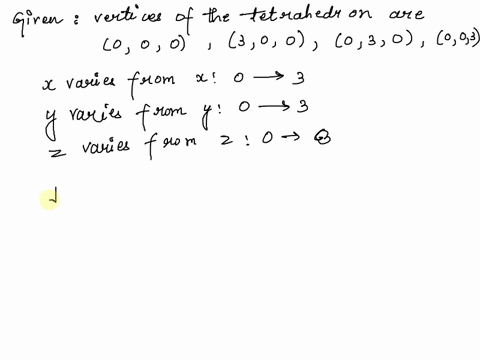 Given : vertices of the tetrahedron are
(0, 0, 0) , (3, 0, 0) , (0, 3, 0) , (0,0,3)
x varies from x : 0 → 3
y varies from y : 0 → 3
z varies from z : 0 →